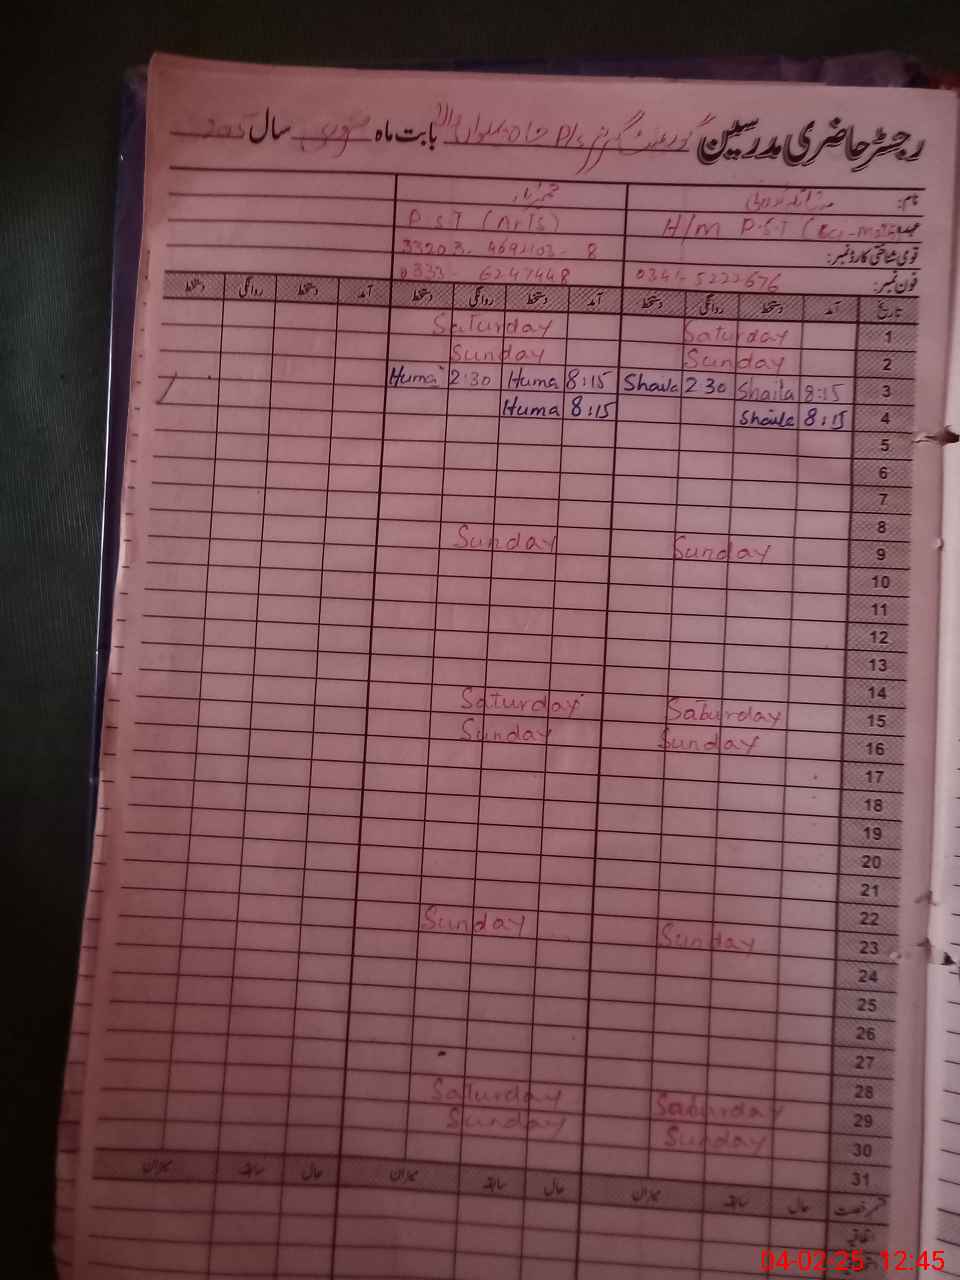 رجسٹر حاضری مدرسین گورنمنٹ گرلز P/S بابت ماہ سال
نام:
عہدہ: H/M P.S.T P.S.T (Arts)
قومی شناختی کارڈ نمبر:
فون نمبر: 0341-5222676 0333-6247448
تاریخ آمد دستخط روانگی دستخط آمد دستخط روانگی دستخط آمد دستخط روانگی دستخط
1 Saturday Saturday
2 Sunday Sunday
3 8:15 Shaila 2:30 Shaila 8:15 Huma 2:30 Huma
4 8:15 Shaila 8:15 Huma
5
6
7
8
9 Sunday Sunday
10
11
12
13
14
15 Saturday Saturday
16 Sunday Sunday
17
18
19
20
21
22
23 Sunday Sunday
24
25
26
27
28
29 Saturday Saturday
30 Sunday Sunday
31
حال سابقہ میزان حال سابقہ میزان حال سابقہ میزان
اتفاقیہ
04-02-25 12:45